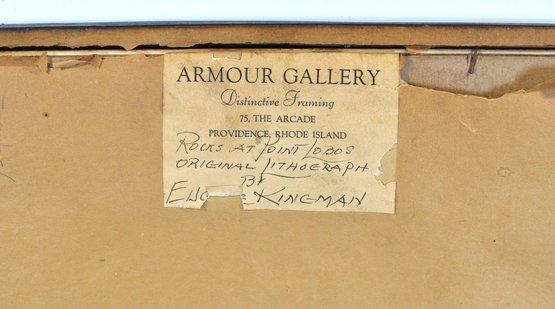 ARMOUR GALLERY
Distinctive Framing
75, THE ARCADE
PROVIDENCE, RHODE ISLAND
ROCKS AT POINT LOBOS
ORIGINAL LITHOGRAPH
BY
KINGMAN